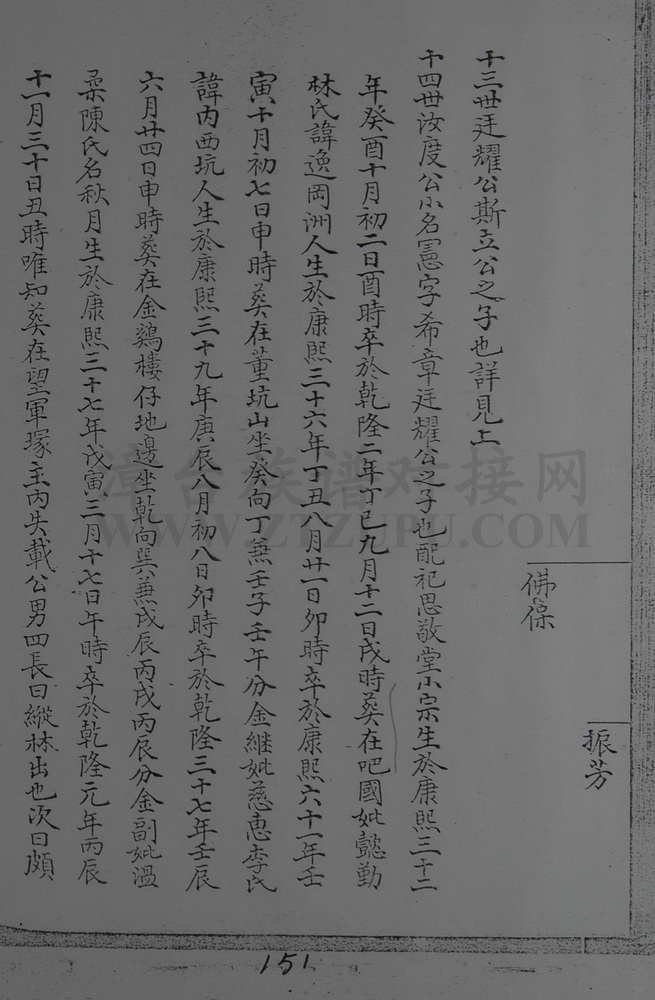 振芳
佛葆
十三世廷耀公斯立公之子也詳見上
十四世汝度公小名憲字希章廷耀公之子也配祀思敬堂小宗生於康熙三十二
年癸酉十月初二日酉時卒於乾隆二年丁巳九月十二日戌時葬在吧國妣懿勤
林氏諱逸岡洲人生於康熙三十六年丁丑八月廿一日卯時卒於康熙六十一年壬
寅十月初七日申時葬在董坑山坐癸向丁兼壬子壬午分金継妣慈惠李氏
諱內西坑人生於康熙三十九年庚辰八月初八日卯時卒於乾隆三十七年壬辰
六月廿四日申時葬在金鷄樓仔地邊坐乾向巽兼戌辰丙戌丙辰分金副妣溫
柔陳氏名秋月生於康熙三十七年戊寅三月十七日午時卒於乾隆元年丙辰
十一月三十日丑時唯知葬在望軍塚主內失載公男四長曰縱林出也次曰頗
漳台族谱对接网
WWW.ZTZUPU.COM
151